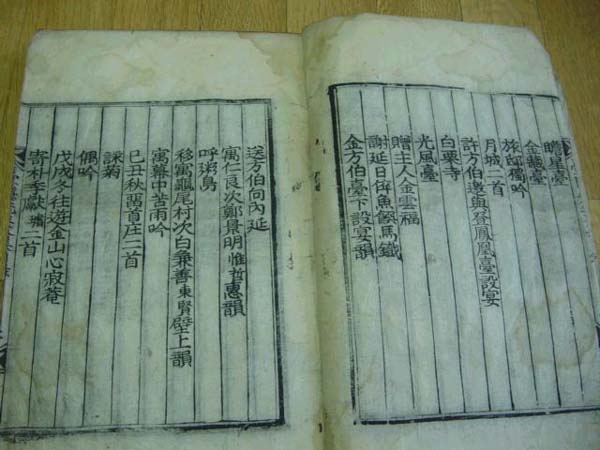 瞻星臺
金藏臺
旅邸獨吟
月城二首
許方伯邀與登鳳凰臺設宴
白栗寺
光風臺
贈主人金雲福
謝延日倅魚饌馬鐵
金方伯臺下設宴韻
送方伯向內延
寓仁良次鄭景明惟哲惠韻
呼粥鳥
移寓龜尾村次白秉善東賢壁上韻
寓中苦雨吟
己丑秋萬首庄二首
詠菊
偶吟
戊戌冬往遊金山心寂菴
寄朴季獻瑞二首